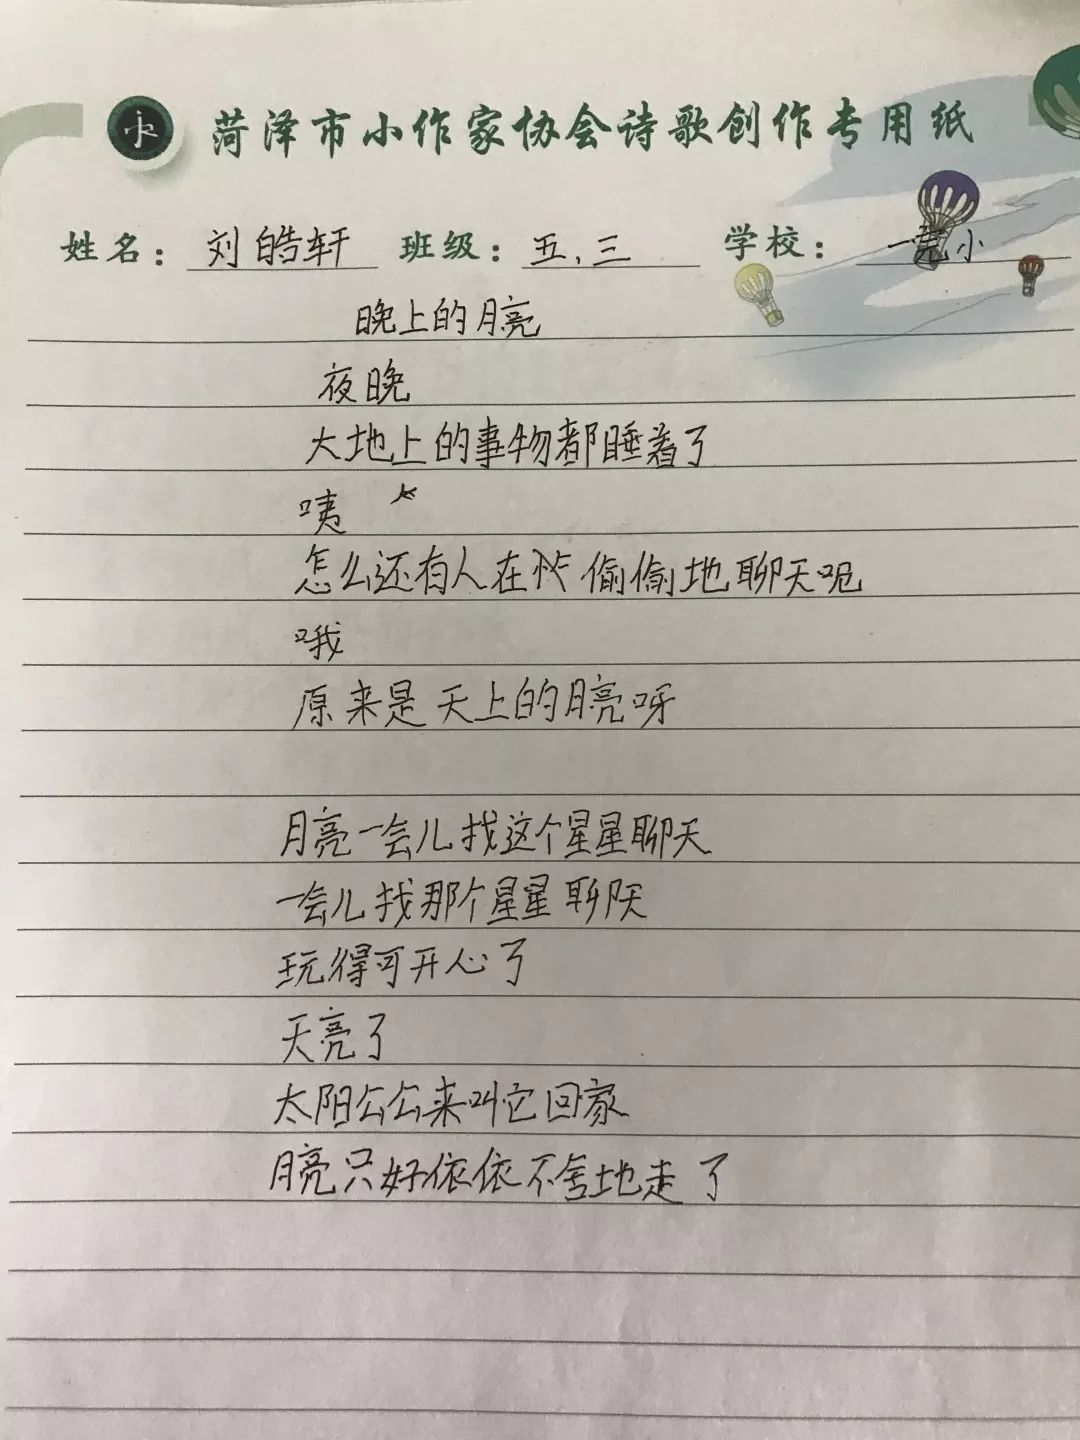 菏泽市小作家协会诗歌创作专用纸
姓名：刘皓轩 班级：五.三 学校：一完小
晚上的月亮
夜晚
大地上的事物都睡着了
咦
怎么还有人在偷偷地聊天呢
哦
原来是天上的月亮呀
月亮一会儿找这个星星聊天
一会儿找那个星星聊天
玩得可开心了
天亮了
太阳公公来叫它回家
月亮只好依依不舍地走了